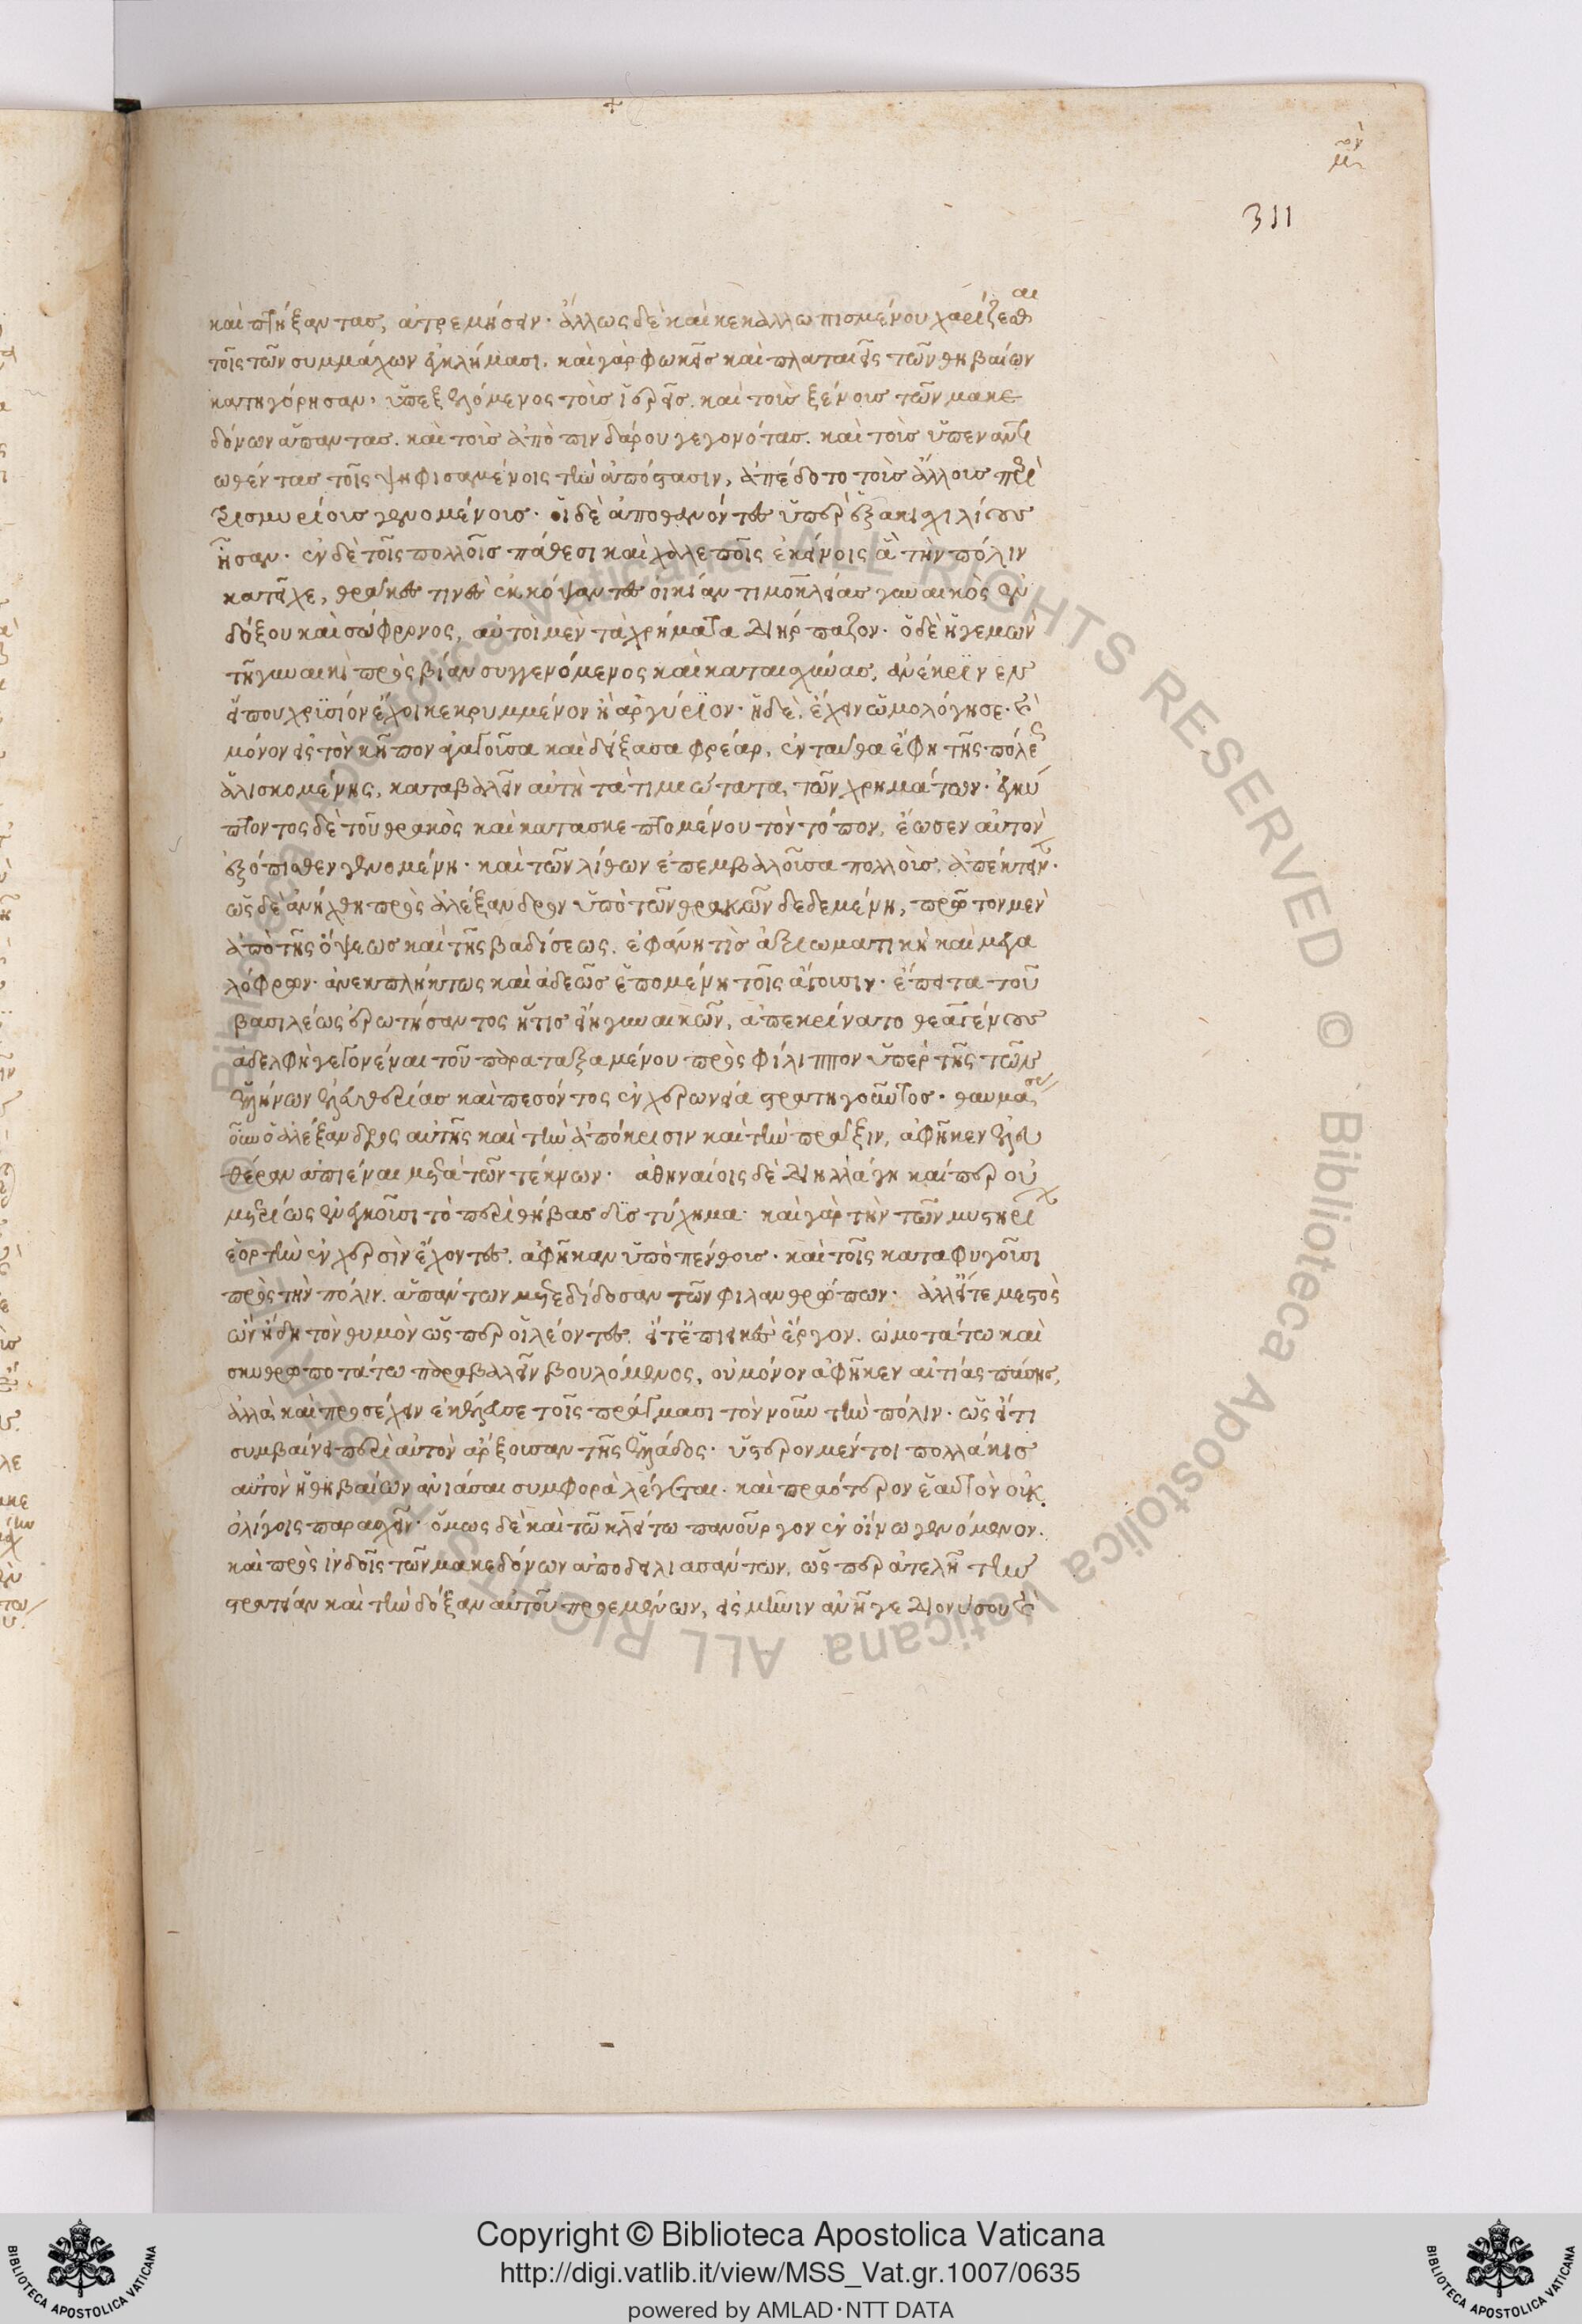 311
καὶ πτήξαντας, ἀτρεμήσειν· ἄλλως δὲ καὶ κεκαλλωπισμένου χαρίζεσθαι
τοῖς τῶν συμμάχων ἐγκλήμασι. καὶ γὰρ φωκεῖς καὶ πλαταιεῖς τῶν θηβαίων
κατηγόρησαν· ὑπεξελόμενος τοὺς ἱερεῖς. καὶ τοὺς ξένους τῶν μακε
δόνων ἅπαντας. καὶ τοὺς ἀπὸ πινδάρου γεγονότας. καὶ τοὺς ὑπεναντι
ωθέντας τοῖς ψηφισαμένοις τὴν ἀπόστασιν, ἀπέδοτο τοὺς ἄλλους περὶ
τρισμυρίους γενομένους. οἱ δὲ ἀποθανόντες ὑπὲρ ἑξακισχιλίους
ἦσαν· ἐν δὲ τοῖς πολλοῖς πάθεσι καὶ χαλεποῖς ἐκείνοις ἃ τὴν πόλιν
κατεῖχε, θρᾷκές τινες ἐκκόψαντες οἰκίαν τιμοκλείας γυναικὸς ἐν
δόξου καὶ σώφρονος, αὐτοὶ μὲν τὰ χρήματα διήρπαζον· ὁ δὲ ἡγεμὼν
τῇ γυναικὶ πρὸς βίαν συγγενόμενος καὶ καταισχύνας, ἀνέκρινεν
εἴπου χρυσίον ἔχοι κεκρυμμένον ἢ ἀργύριον· ἡ δὲ, ἔχειν ὡμολόγησε· καὶ
μόνον εἰς τὸν κῆπον ἀγαγοῦσα καὶ δείξασα φρέαρ, ἐνταῦθα ἔφη τῆς πόλεως
ἁλισκομένης, καταβαλεῖν αὐτὴ τὰ τιμιώτατα τῶν χρημάτων· ἐγκύ
πτοντος δὲ τοῦ θρακὸς καὶ κατασκεπτομένου τὸν τόπον, ἔωσεν αὐτὸν
ἐξόπισθεν γενομένη· καὶ τῶν λίθων ἐπεμβαλοῦσα πολλοὺς, ἀπέκτεινεν·
ὡς δὲ ἀνήχθη πρὸς ἀλέξανδρον ὑπὸ τῶν θρακῶν δεδεμένη, πρῶτον μὲν
ἀπὸ τῆς ὄψεως καὶ τῆς βαδίσεως. ἐφάνη τὶς ἀξιωματικὴ καὶ μεγα
λόφρων· ἀνεκπλήκτως καὶ ἀδεῶς ἑπομένη τοῖς ἄγουσιν· ἔπειτα τοῦ
βασιλέως ἐρωτήσαντος ἥτις εἴη γυναικῶν, ἀπεκρίνατο θεαγένους
ἀδελφὴ γεγονέναι τοῦ παραταξαμένου πρὸς φίλιππον ὑπὲρ τῆς τῶν
ἑλλήνων ἐλευθερίας καὶ πεσόντος ἐν χερωνείᾳ στρατηγοῦντος. θαυμάσας
οὖν ὁ ἀλέξανδρος αὐτῆς καὶ τὴν ἀπόκρισιν καὶ τὴν πρᾶξιν, ἀφῆκεν ἐλευ
θέραν ἀπιέναι μετὰ τῶν τέκνων· ἀθηναίοις δὲ διηλλάγη καίπερ οὐ
μετρίως ἐνεγκοῦσι τὸ περὶ θήβας δυστύχημα· καὶ γὰρ τὴν τῶν μυστηρίων
ἑορτὴν ἐν χερσὶν ἔχοντες. ἀφῆκαν ὑπὸ πένθους. καὶ τοῖς καταφυγοῦσι
πρὸς τὴν πόλιν. ἁπάντων μετεδίδοσαν τῶν φιλανθρώπων· ἀλλ' εἴτε μεστὸς
ὢν ἤδη τὸν θυμὸν ὥσπερ οἱ λέοντες. εἴτ' ἐπιεικὲς ἔργον. ὠμοτάτω καὶ
σκυθρωποτάτω παραβαλεῖν βουλόμενος, οὐ μόνον ἀφῆκεν αἰτίας πάσης,
ἀλλὰ καὶ προσέχειν ἐκέλευσε τοῖς πράγμασι τὸν νοῦν τὴν πόλιν· ὡς εἴτι
συμβαίνει περὶ αὐτὸν ἄρξουσαν τῆς ἑλλάδος· ὕστερον μέντοι πολλάκις
αὐτὸν ἡ θηβαίων ἀνιᾶσαι συμφορὰ λέγεται· καὶ πραότερον ἑαυτὸν οὐκ
ὀλίγοις παρασχεῖν· ὅμως δὲ καὶ τῶ κλείτω πανοῦργον ἐν οἴνω γενόμενον.
καὶ πρὸς ἰνδοῖς τῶν μακεδόνων ἀποδειλιασάντων, ὥσπερ ἀτελῆ τὴν
στρατείαν καὶ τὴν δόξαν αὐτοῦ προεμένων, εἰς μῆνιν ἀνῆγε διονύσου καὶ
Copyright © Biblioteca Apostolica Vaticana
http://digi.vatlib.it/view/MSS_Vat.gr.1007/0635
powered by AMLAD·NTT DATA
BIBLIOTECA APOSTOLICA VATICANA
BIBLIOTECA APOSTOLICA VATICANA
© Biblioteca Apostolica Vaticana ALL RIGHTS RESERVED